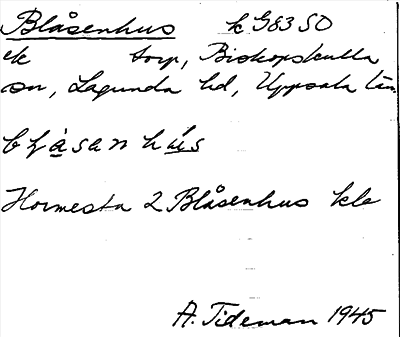 Blåsenhus k G83 SO
ek torp, Biskopskulla
sn, Lagunda hd, Uppsala län
blåsanhús
Hormesta 2 Blåsenhus kle
A. Tideman 1945